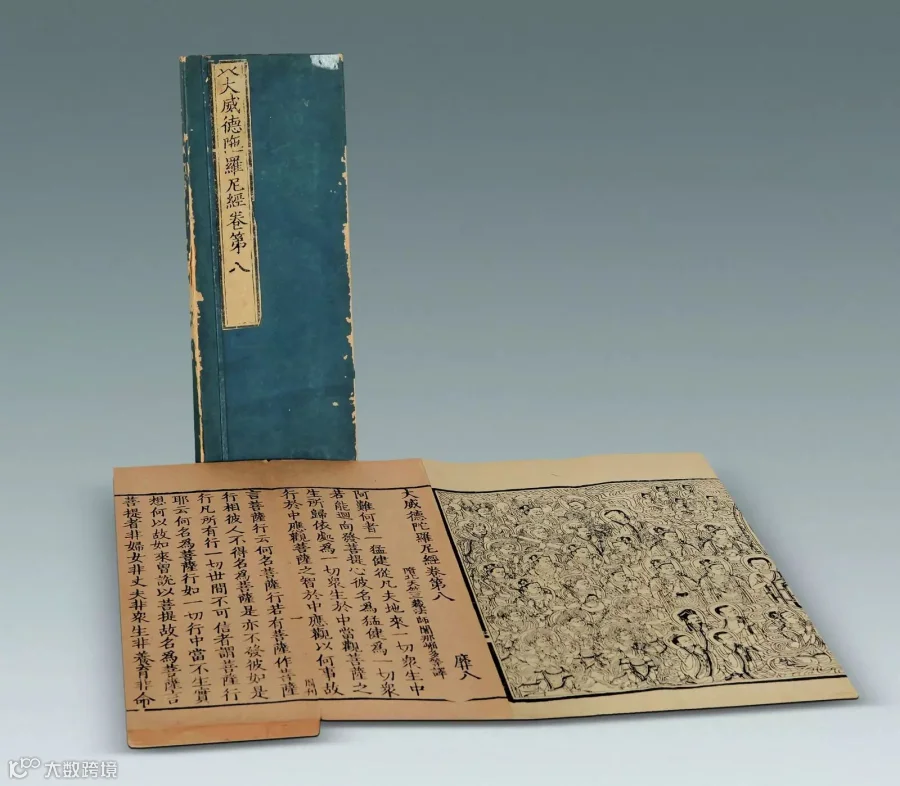 大威德陁羅尼經卷第八
大威德陀羅尼經卷第八
隋北天竺三藏法師闍那崛多等譯
靡八
阿難何者一猛健從凡夫地來一切衆生中
若能迴向發菩提心彼名爲猛健爲一切衆
生所歸依處爲一切衆生於中當觀菩薩之
行於中應觀菩薩之智於中應觀以何事故
言菩薩行云何名菩薩行若有菩薩作菩薩
行相彼人不得名爲菩薩是亦不發彼如是
行凡所有行一切世間不可信者謂菩薩行
耶云何名爲菩薩行如一切行中當不生實
想何以故如來曾説以菩提故名爲菩薩言
菩提者非婦女非丈夫非衆生非養育非命
大数跨境